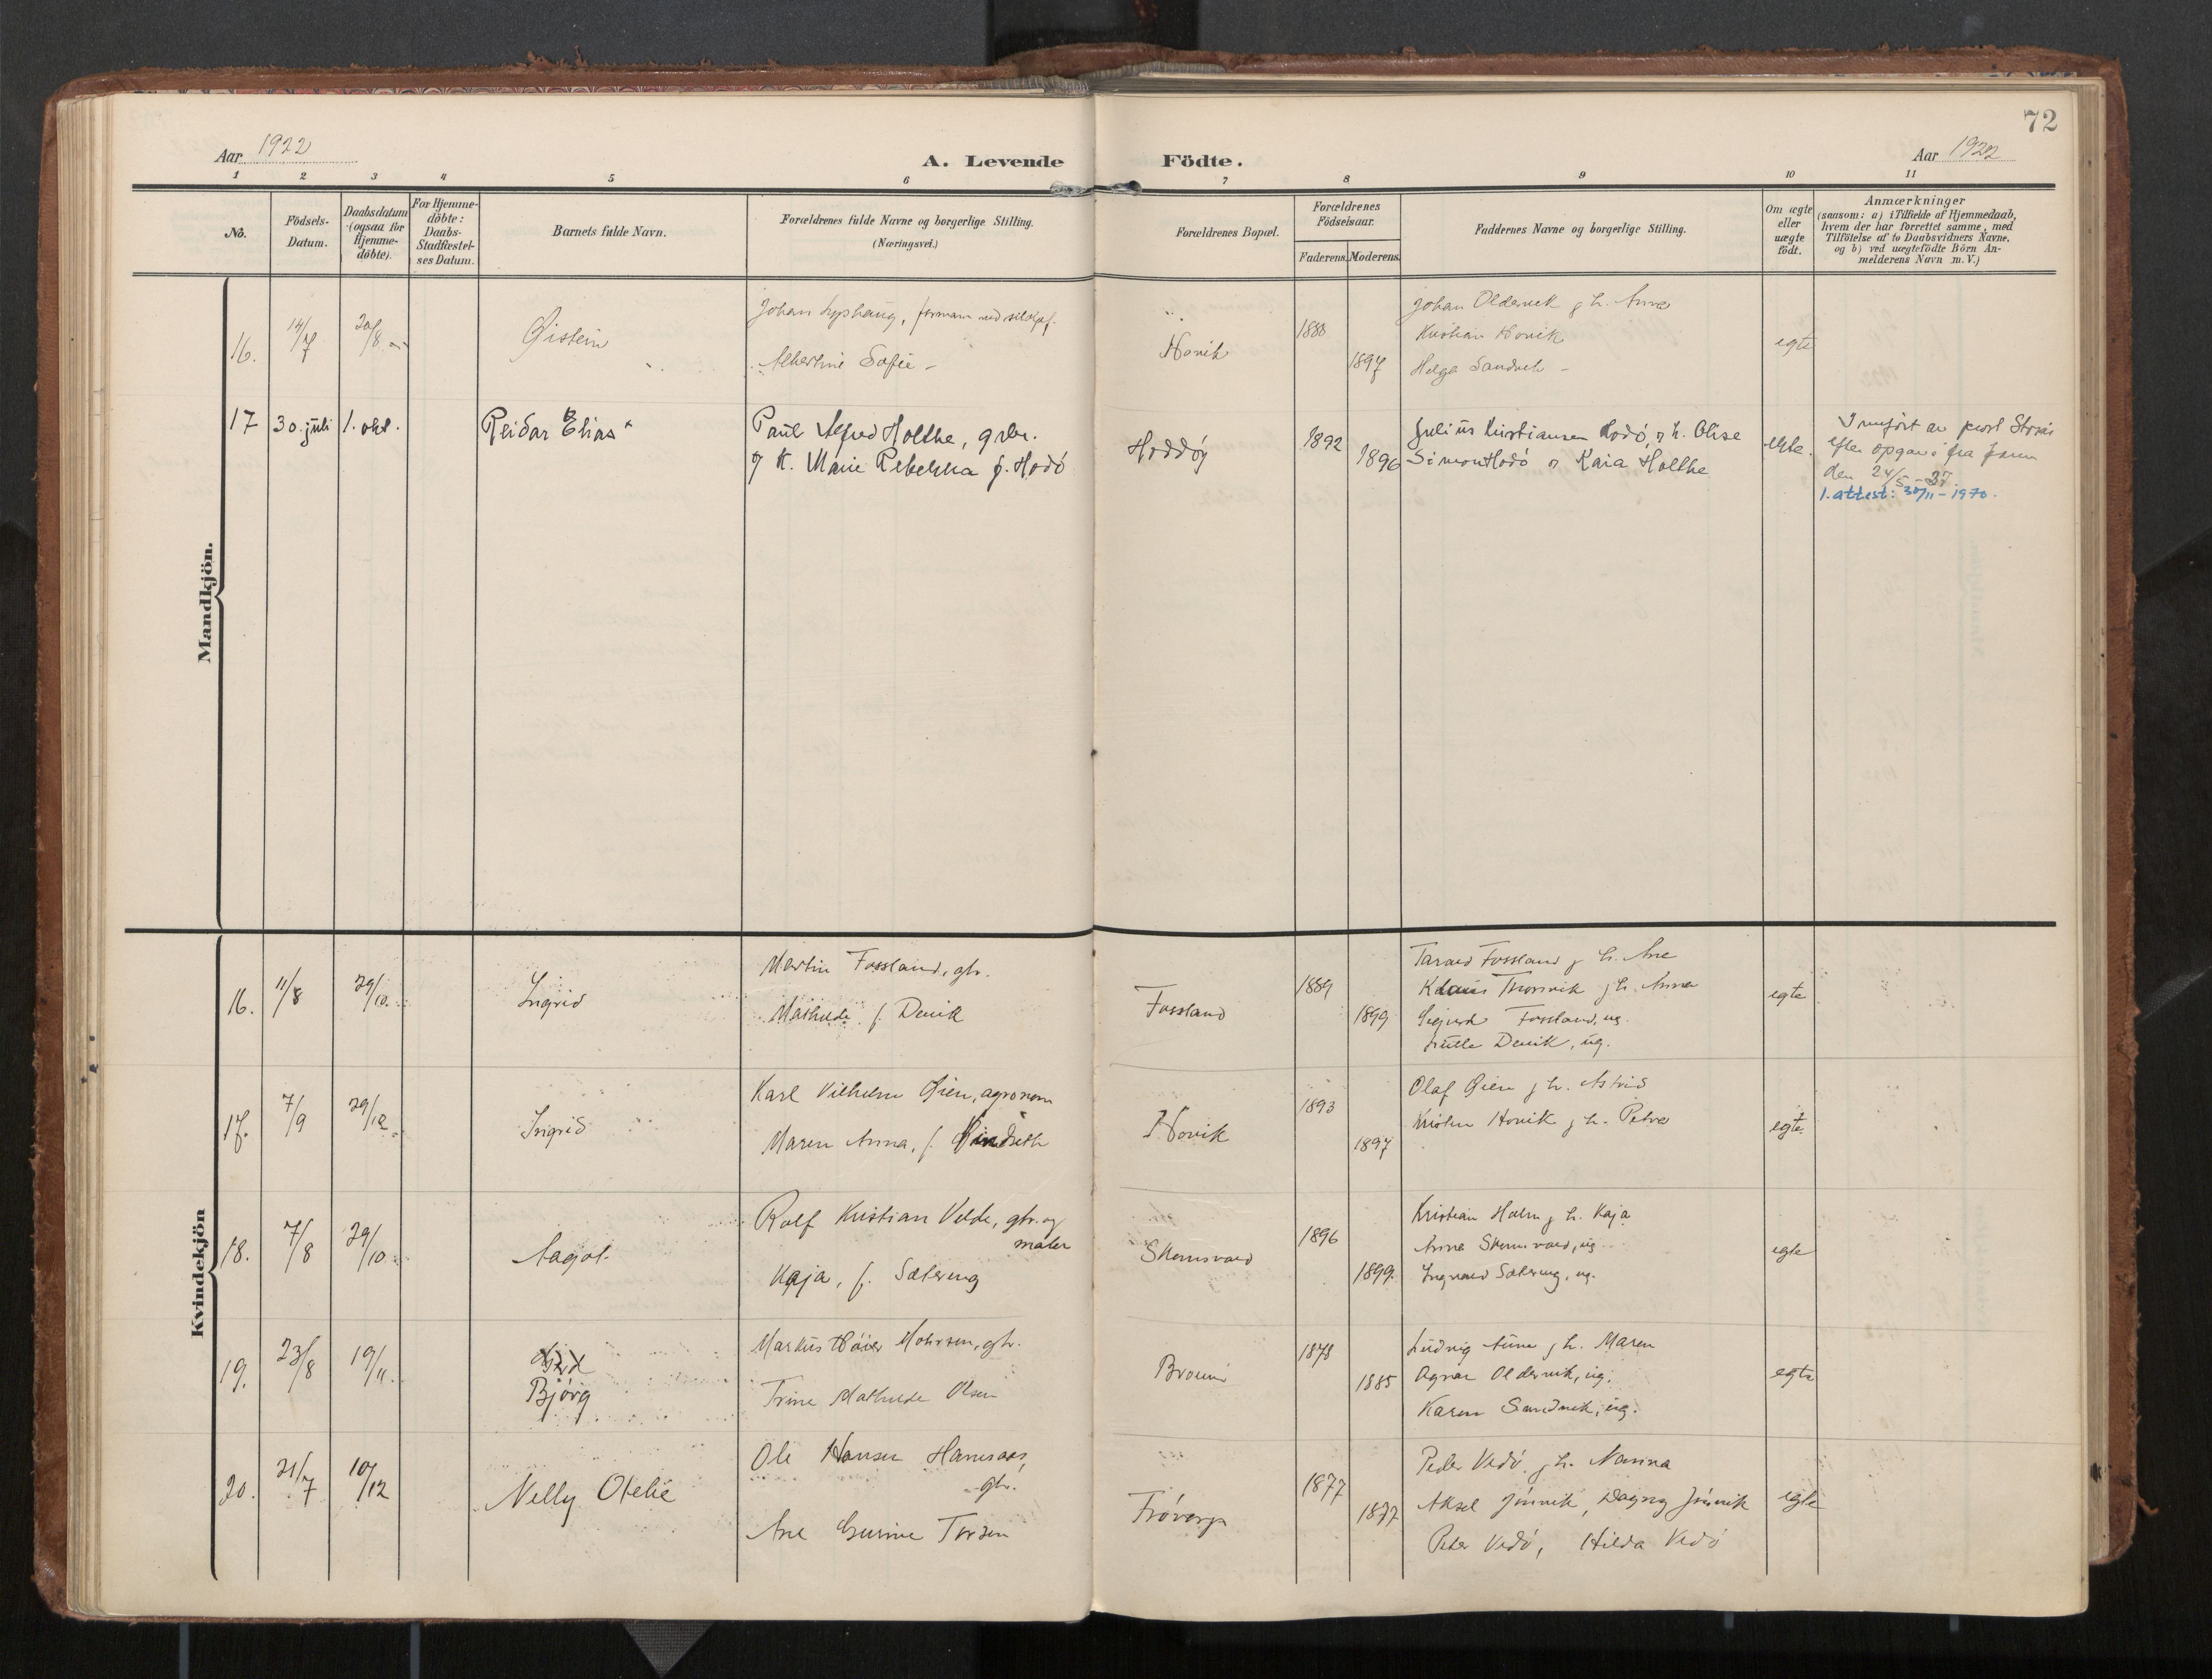 72
Aar 1922
A. Levende Födte.
Aar 1922
1 2 3 4 5 6 7 8 9 10 11
No.
Födsels-
Datum.
Daabsdatum
(ogsaa for
Hjemme-
döbte).
For Hjemme-
döbte:
Daabs-
Stadfæstel-
ses Datum.
Barnets fulde Navn.
Forældrenes fulde Navne og borgerlige Stilling.
(Næringsvei.)
Forældrenes Bopæl.
Forældrenes
Födselsaar.
Faderens. Moderens.
Faddernes Navne og borgerlige Stilling.
Om ægte
eller
uægte
födt.
Anmærkninger
(saasom: a) i Tilfælde af Hjemmedaab,
hvem der har forrettet samme, med
Tilföielse af to Daabsvidners Navne,
og b) ved uægtefödte Börn An-
melderens Navn m. V.)
Mandkjön.
16. 14/7 20/8
Øistein
Johan
Albertine Sofie
Hovik
1888
1897
Johan Oldervik g h. Anna
Kristian Hovik
Helga Sandvik
egte
17 30. juli 1. okt.
Reidar Elias
Paul Alfred Holthe, grbr.
og K. Marie Rebekka f. Hodö
Hoddöy
1892
1896
Julius Kristiansen Hodö, og h. Olise
Simon Hodö og Kaia Holthe
egte.
Innfört av
efter opgave fra
den 24/5-37.
1. attest: 30/11-1970.
Kvindekjön
16. 11/8 29/10
Ingrid
Martin Fossland, gbr.
Mathilde f. Devik
Fossland
1889
1899
Fossland g h. Ane
Klaus Thorsvik g h. Anna
Sigurd Fossland, ug.
Devik, ug.
egte
17. 7/9 29/12
Ingrid
Karl Vilhelm Øien, agronom
Maren Anna, f.
Hovik
1893
1897
Olaf Øien g h. Astrid
Kristen Hovik g h. Petra
egte
18. 7/8 29/10
Aagot.
Rolf Kristian Velde, gbr. og
maler
Kaja, f. Sætering
Skomsvold
1896
1899.
Kristian Holm g h. Kaja
Anna Skomsvold, ug.
Ingvald Sætering, ug.
egte
19. 23/8 19/11
Bjørg
Markus Høier Mohrsen, gbr.
Trine Mathilde Olsen
1878
1885
Ludvig Aune g h. Maren
Agnar Oldervik, ug.
Karen Sandvik, ug.
egte
20. 21/7 10/12
Nelly Otelie
Ole Hansen
gbr.
Ane Gurine Torsen
1877
1877
Peder Vedö g h. Nanna
Aksel Jönvik, Dagny Jönvik
Peter Vedö, Hilda Vedö
egte